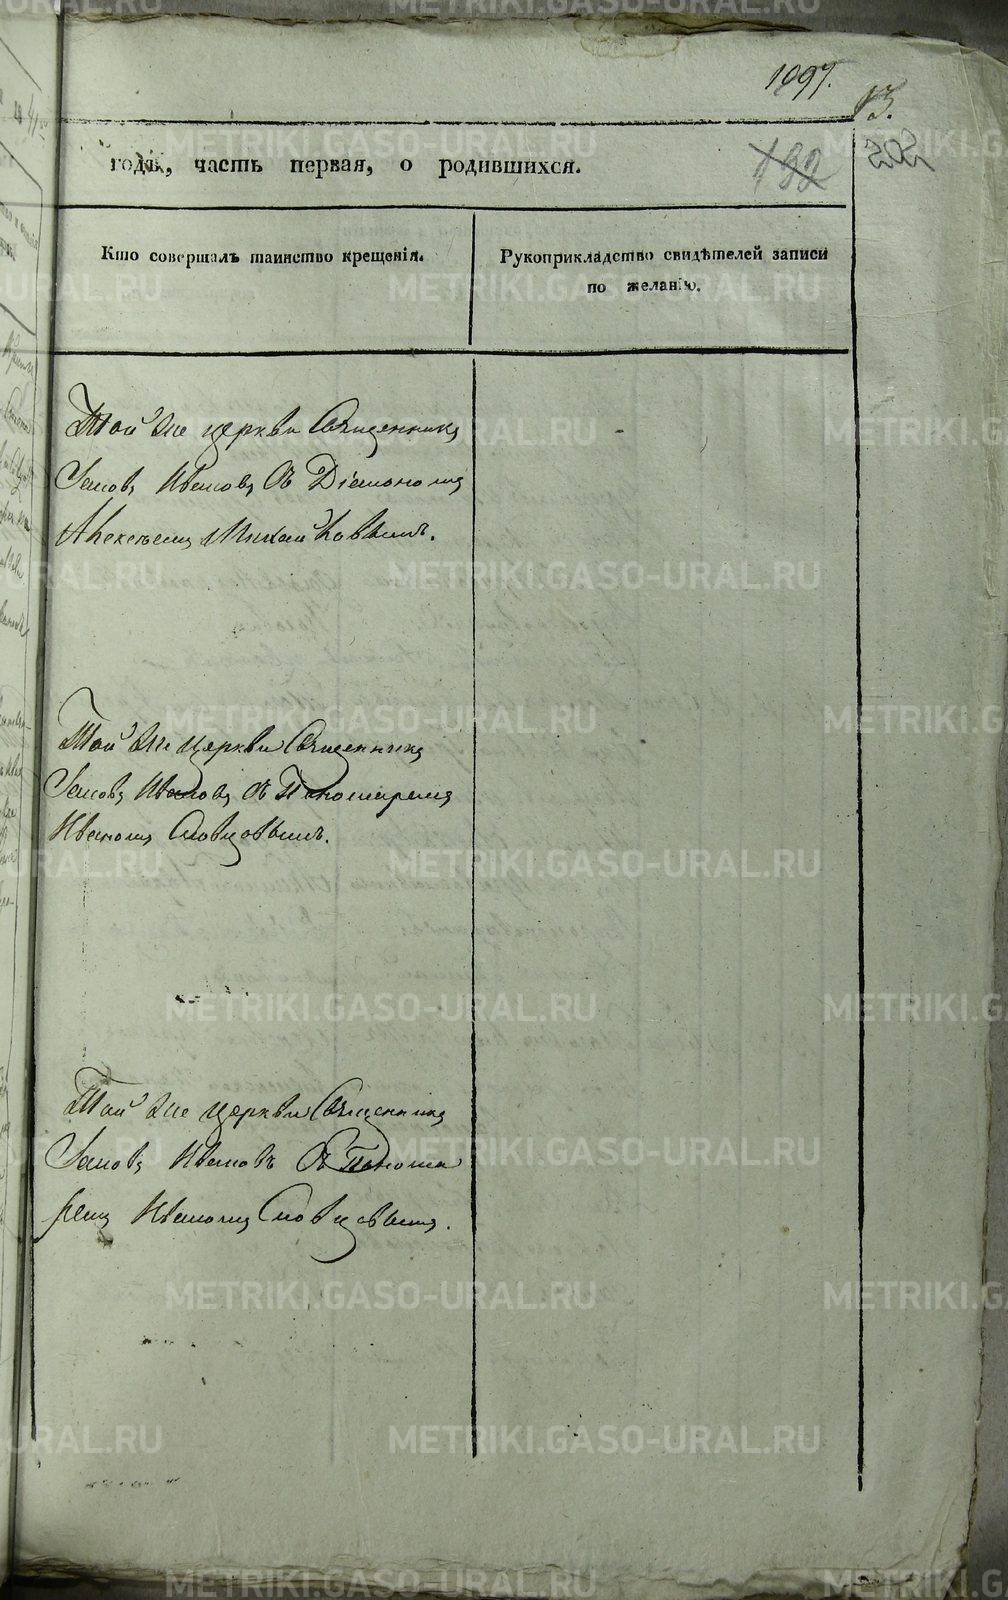 1097.
13.
годъ, часть первая, о родившихся.
132
Кто совершалъ таинство крещенія.
Рукоприкладство свидѣтелей записи
по желанію.
Той же церкви Священникъ
Іаковъ Ивановъ съ Діакономъ
Алексѣемъ
Той же церкви Священникъ
Іаковъ Ивановъ съ Пономаремъ
Иваномъ Словцовымъ.
Той же церкви Священникъ
Іаковъ Ивановъ съ Понома
ремъ Иваномъ Словцовымъ.
METRIKI.GASO-URAL.RU